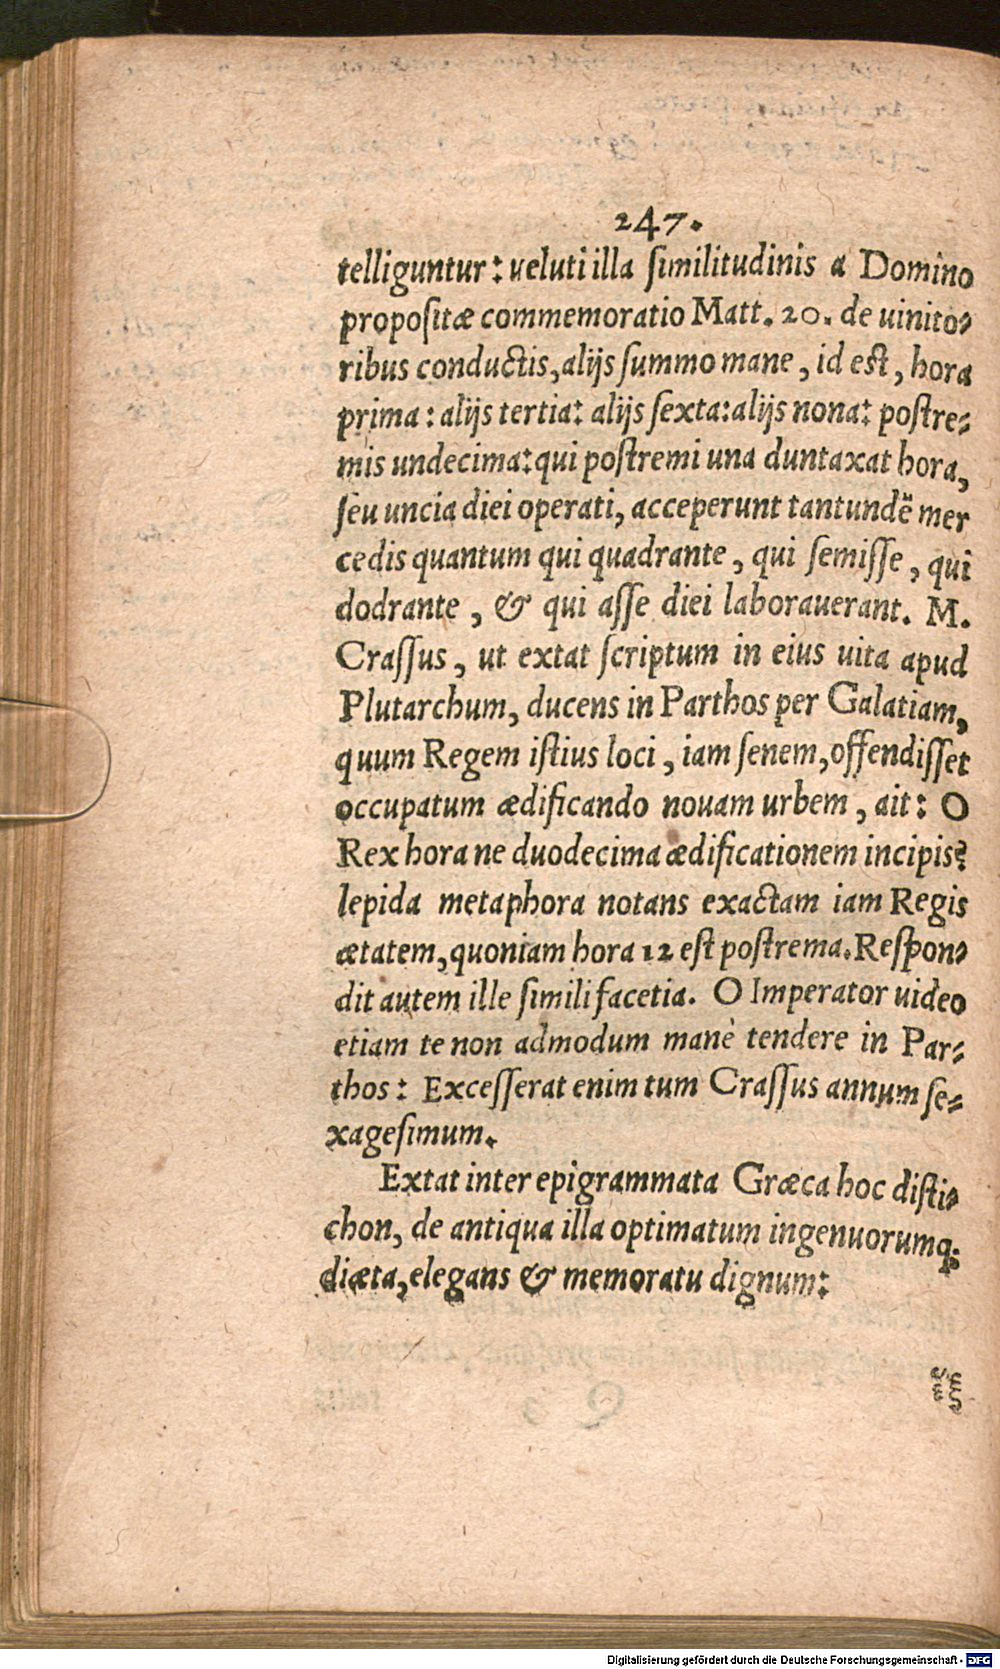 247.
telliguntur: ueluti illa similitudinis a Domino
propositæ commemoratio Matt. 20. de uinito-
ribus conductis, alijs summo mane, id est, hora
prima: alijs tertia: alijs sexta: alijs nona: postre-
mis undecima: qui postremi una duntaxat hora,
seu uncia diei operati, acceperunt tantundē mer
cedis quantum qui quadrante, qui semisse, qui
dodrante, & qui asse diei laborauerant. M.
Crassus, ut extat scriptum in eius uita apud
Plutarchum, ducens in Parthos per Galatiam,
quum Regem istius loci, iam senem, offendisset
occupatum ædificando nouam urbem, ait: O
Rex hora ne duodecima ædificationem incipis?
lepida metaphora notans exactam iam Regis
ætatem, quoniam hora 12 est postrema. Respon-
dit autem ille simili facetia. O Imperator uideo
etiam te non admodum manè tendere in Par-
thos: Excesserat enim tum Crassus annum se-
xagesimum.
Extat inter epigrammata Græca hoc disti-
chon, de antiqua illa optimatum ingenuorumq;
diæta, elegans & memoratu dignum:
Digitalisierung gefördert durch die Deutsche Forschungsgemeinschaft - DFG